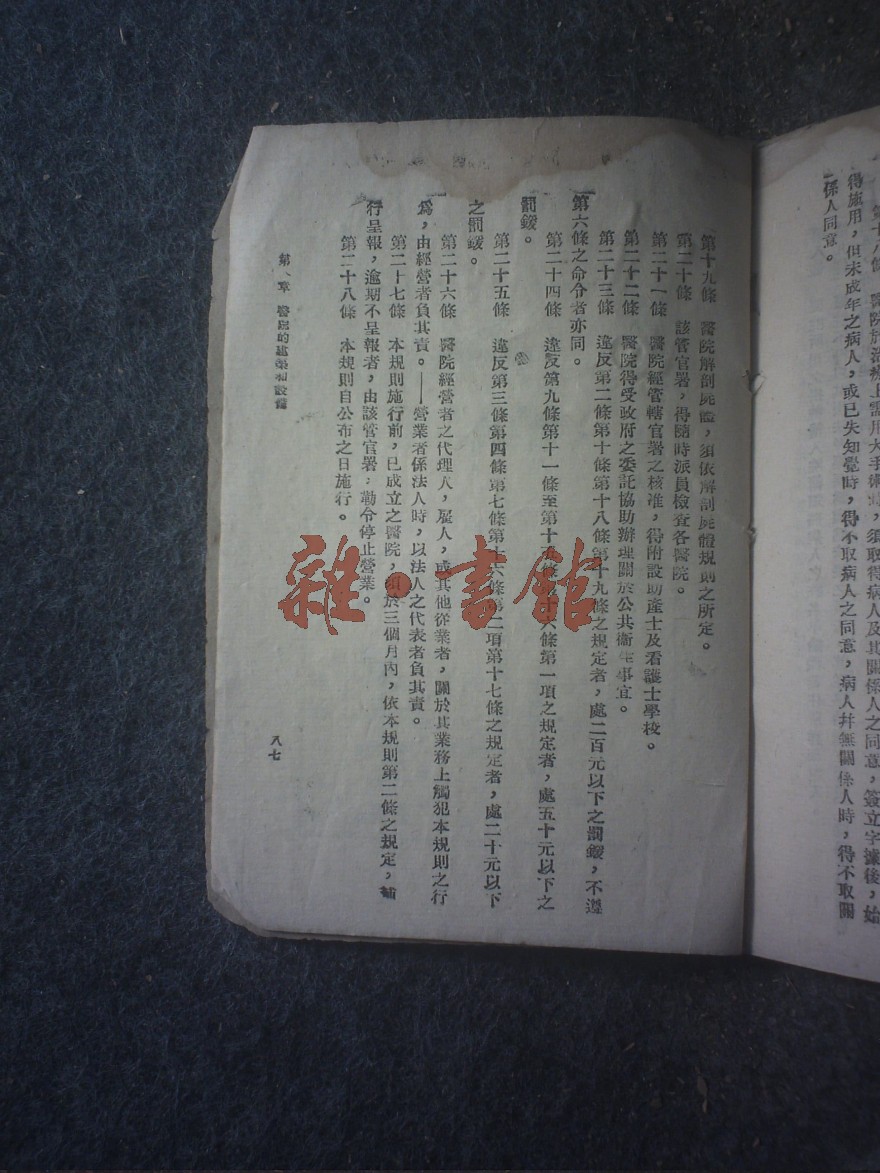 第十八條　醫院於治療上需用大手術時，須取得病人及其關係人之同意，簽立字據後，始
得施用，但未成年之病人，或已失知覺時，得不取病人之同意，病人并無關係人時，得不取關
係人同意。
第十九條　醫院解剖屍體，須依解剖屍體規則之所定。
第二十條　該管官署，得隨時派員檢查各醫院。
第二十一條　醫院經管轄官署之核准，得附設助產士及看護士學校。
第二十二條　醫院得受政府之委託協助辦理關於公共衞生事宜。
第二十三條　違反第二條第十條第十八條第十九條之規定者，處二百元以下之罰鍰，不遵
第六條之命令者亦同。
第二十四條　違反第九條第十一條至第十五條第十六條第一項之規定者，處五十元以下之
罰鍰。
第二十五條　違反第三條第四條第七條第十六條第二項第十七條之規定者，處二十元以下
之罰鍰。
第二十六條　醫院經營者之代理人，雇人，或其他從業者，關於其業務上觸犯本規則之行
爲，由經營者負其責。——營業者係法人時，以法人之代表者負其責。
第二十七條　本規則施行前，已成立之醫院，須於三個月內，依本規則第二條之規定，補
行呈報，逾期不呈報者，由該管官署，勒令停止營業。
第二十八條　本規則自公布之日施行。
章　醫院的建築和設備
八七
雜·書館